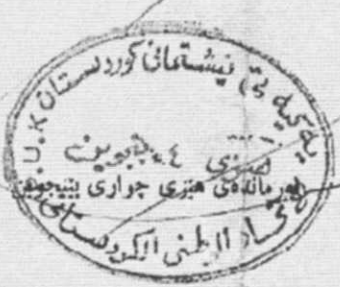 یەکیەتی نیشتمانی کوردستان
P.U.K
هێزی ٤ پێنجوێن
فەرماندەی هێزی چواری پێنجوێن
الاتحاد الوطني الكردستاني